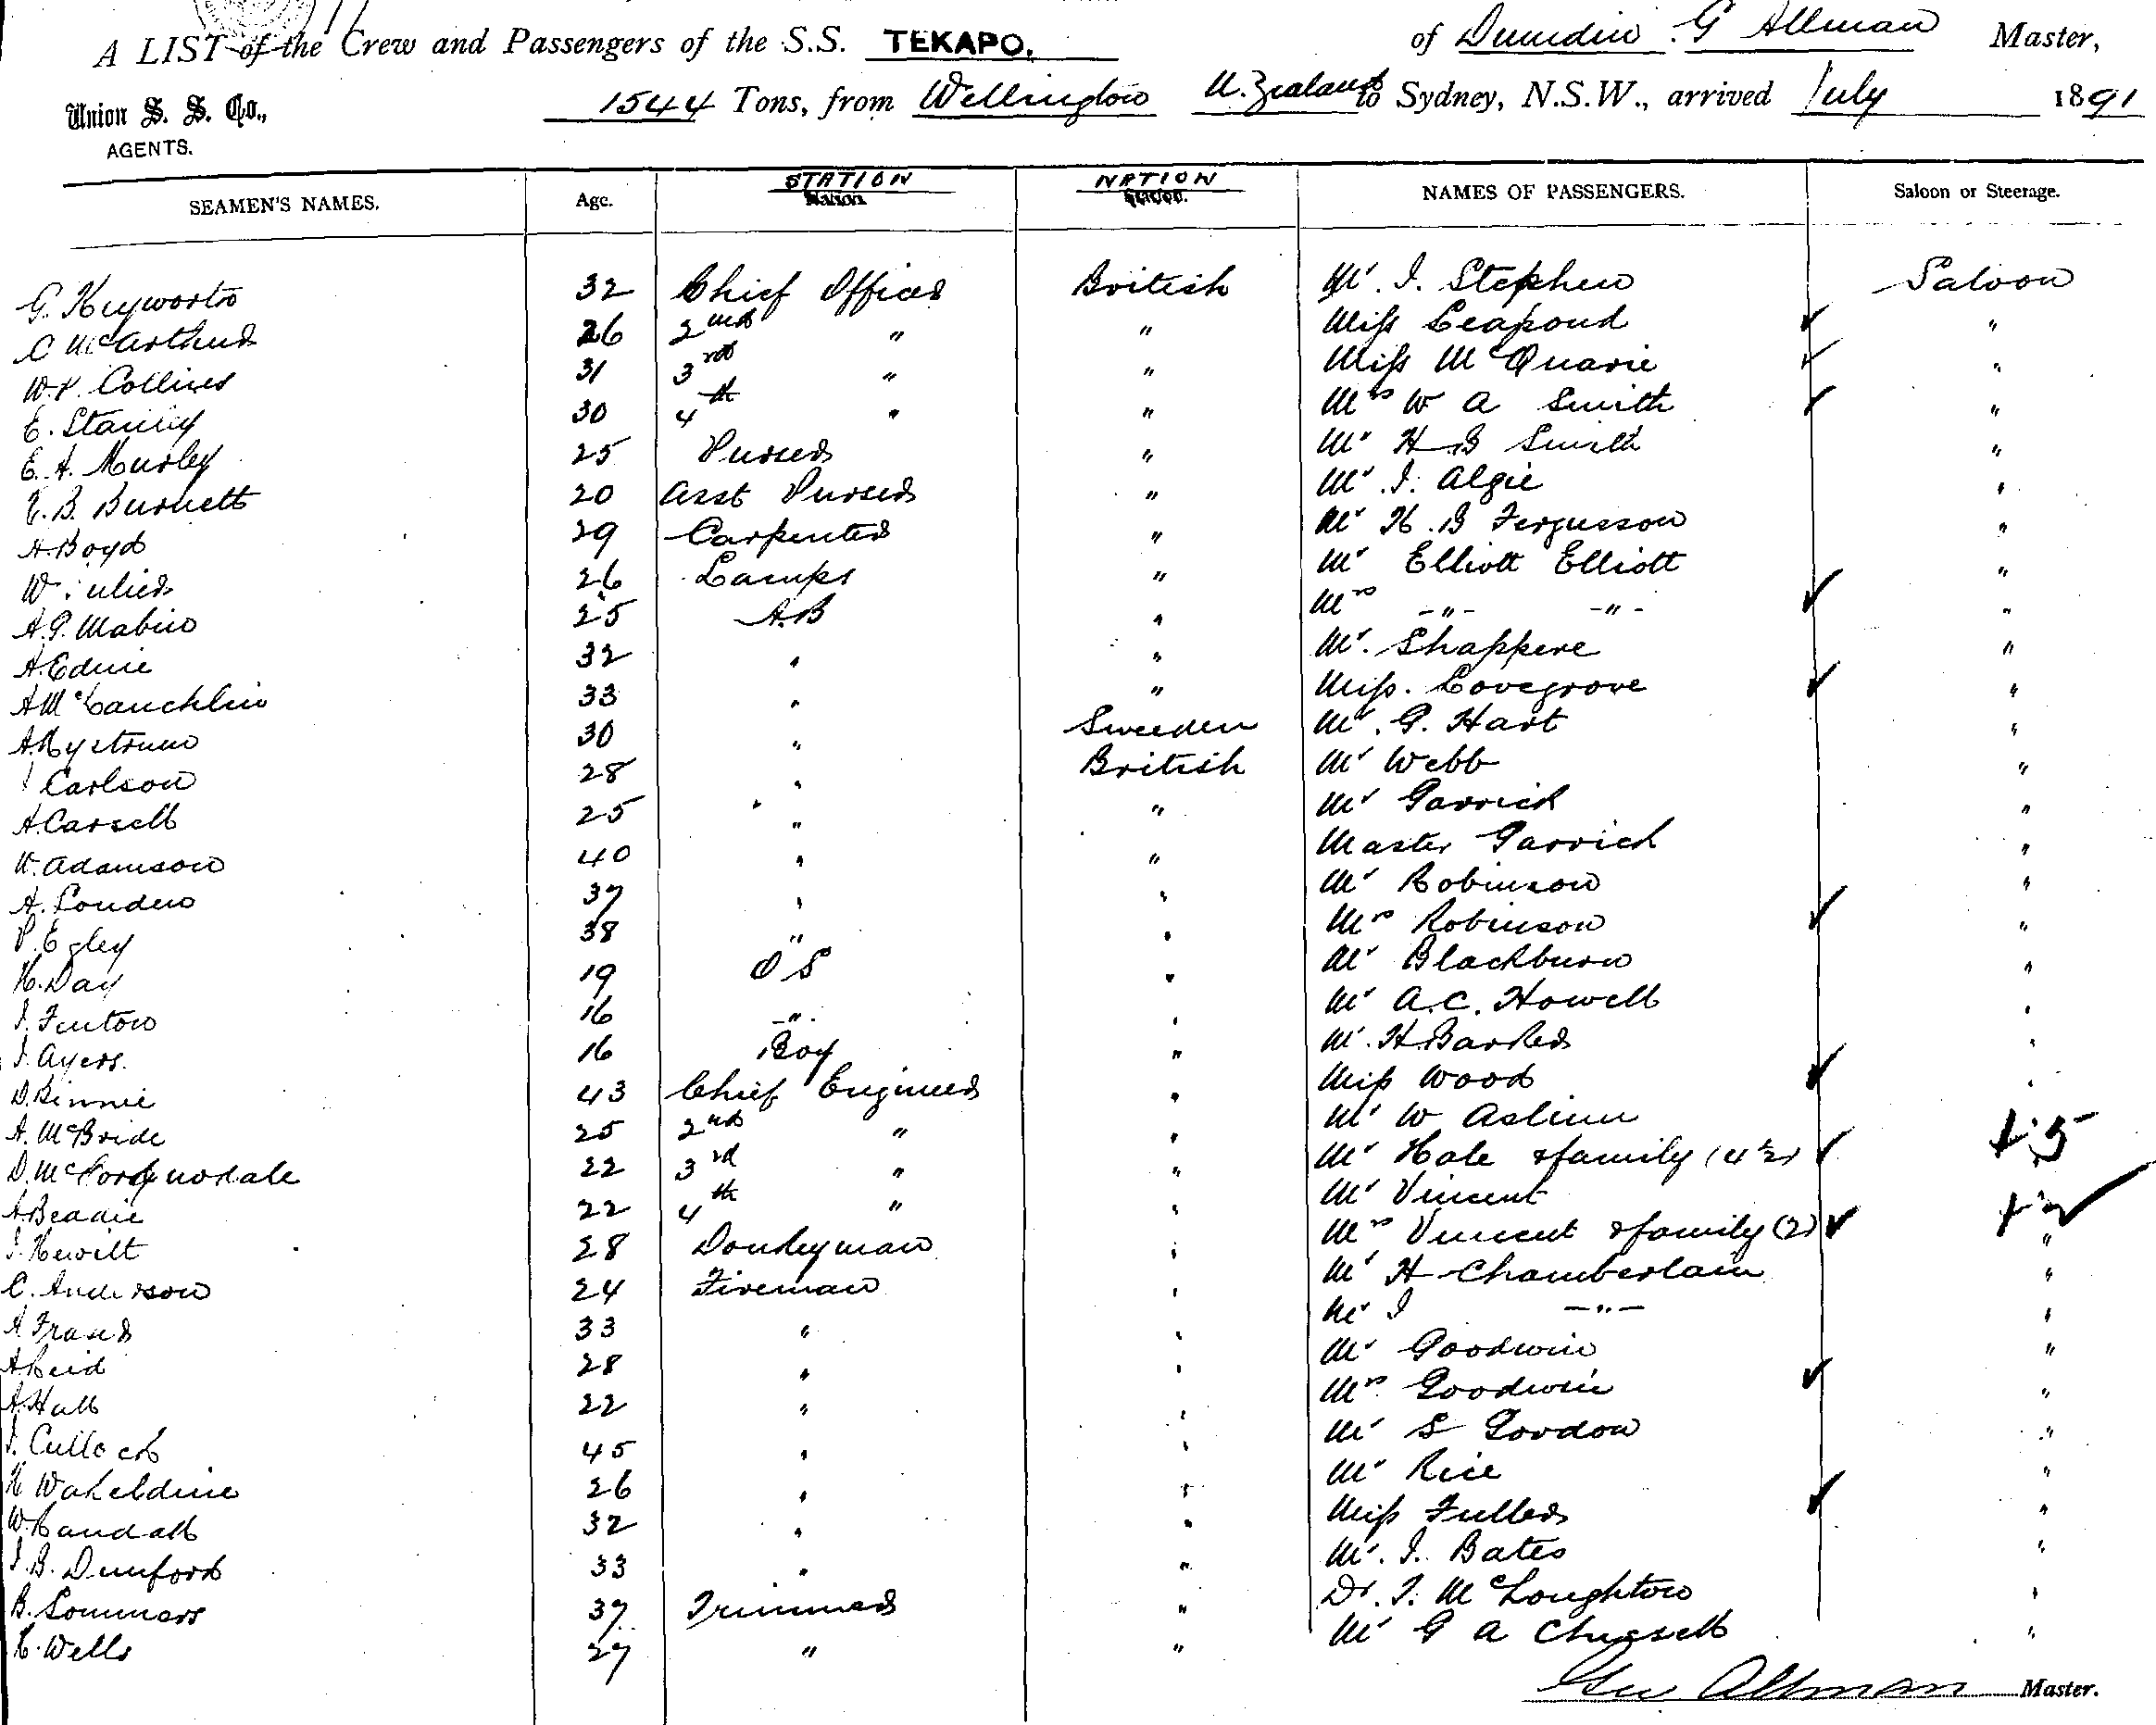 A LIST of the Crew and Passengers of the S.S. TEKAPO, of Dunedin G Allman Master,
Union S. S. Co., AGENTS.
1544 Tons, from Wellington N. Zealand to Sydney, N.S.W., arrived July 1891
SEAMEN'S NAMES. Age. STATION NATION NAMES OF PASSENGERS. Saloon or Steerage.
G. Heyworth 32 Chief Officer British Mr. J. Stephen Saloon
C McArthur 26 2nd " " Miss Leapond "
Collins 31 3rd " " Miss McQuarie "
E. Stanley 30 4th " " Mrs W A Smith "
E. A. Murley 25 Purser " Mr H B Smith "
E. B. Burnett 20 Asst Purser " Mr J. Algie "
A. Boyd 29 Carpenter " Mr H. B Fergusson "
W. 26 Lamps " Mr Elliott Elliott "
A. G. Mabin 25 A.B " Mrs -"- -"- "
A. Edine 32 " " Mr. Shappere "
A McLauchlin 33 " " Miss. Lovegrove "
A. Nystrum 30 " Sweeden Mr. G. Hart "
Carlson 28 " British Mr Webb "
A. Carsell 25 " " Mr Garrick "
W. Adamson 40 " " Master Garrick "
A. Louden 37 " " Mr Robinson "
P. Egley 38 " " Mrs Robinson "
H. Day 19 O S " Mr Blackburn "
J. Fenton 16 -"- " Mr A.C. Howell "
J. Ayers. 16 Boy " Mr. H. Barker "
D. Binnie 43 Chief Engineer " Miss Wood "
A. McBride 25 2nd " " Mr W Aslinn
D. McCorquodale 22 3rd " " Mr Hale & family (4½)
A. Beadie 22 4th " " Mr Vincent
J. Hewitt 28 Donkeyman " Mrs Vincent & family (2) "
C. Anderson 24 Fireman " Mr H Chamberlain "
A Fraser 33 " " Mr J -"- "
A Reid 28 " " Mr Goodwin "
A. Hall 22 " " Mrs Goodwin "
J. Culloch 45 " " Mr S Gordon "
H Wakeldine 26 " " Mr Rice "
W. Randall 32 " " Miss Fuller "
J. B. Dunford 33 " " Mr. J. Bates "
B. Sommers 37 Trimmer " Dr. J. McLoughton "
H. Wells 27 " " Mr G A "
Geo Allman Master.